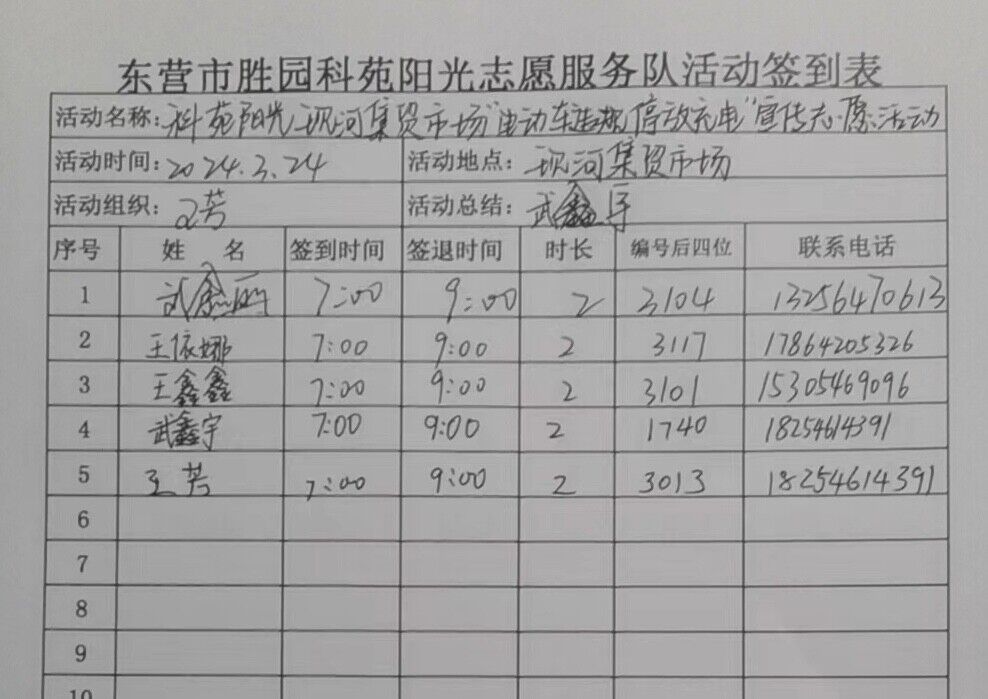 东营市胜园科苑阳光志愿服务队活动签到表
活动名称: 科苑阳光 现河集贸市场"电动车违规停放充电"宣传志愿活动
活动时间: 2024.3.24 活动地点: 现河集贸市场
活动组织: 王芳 活动总结: 武鑫宇
序号 姓 名 签到时间 签退时间 时长 编号后四位 联系电话
1 武鑫丽 7:00 9:00 2 3104 13256470613
2 王依娜 7:00 9:00 2 3117 17864205326
3 王鑫鑫 7:00 9:00 2 3101 15305469096
4 武鑫宇 7:00 9:00 2 1740 18254614391
5 王芳 7:00 9:00 2 3013 18254614391
6
7
8
9
10